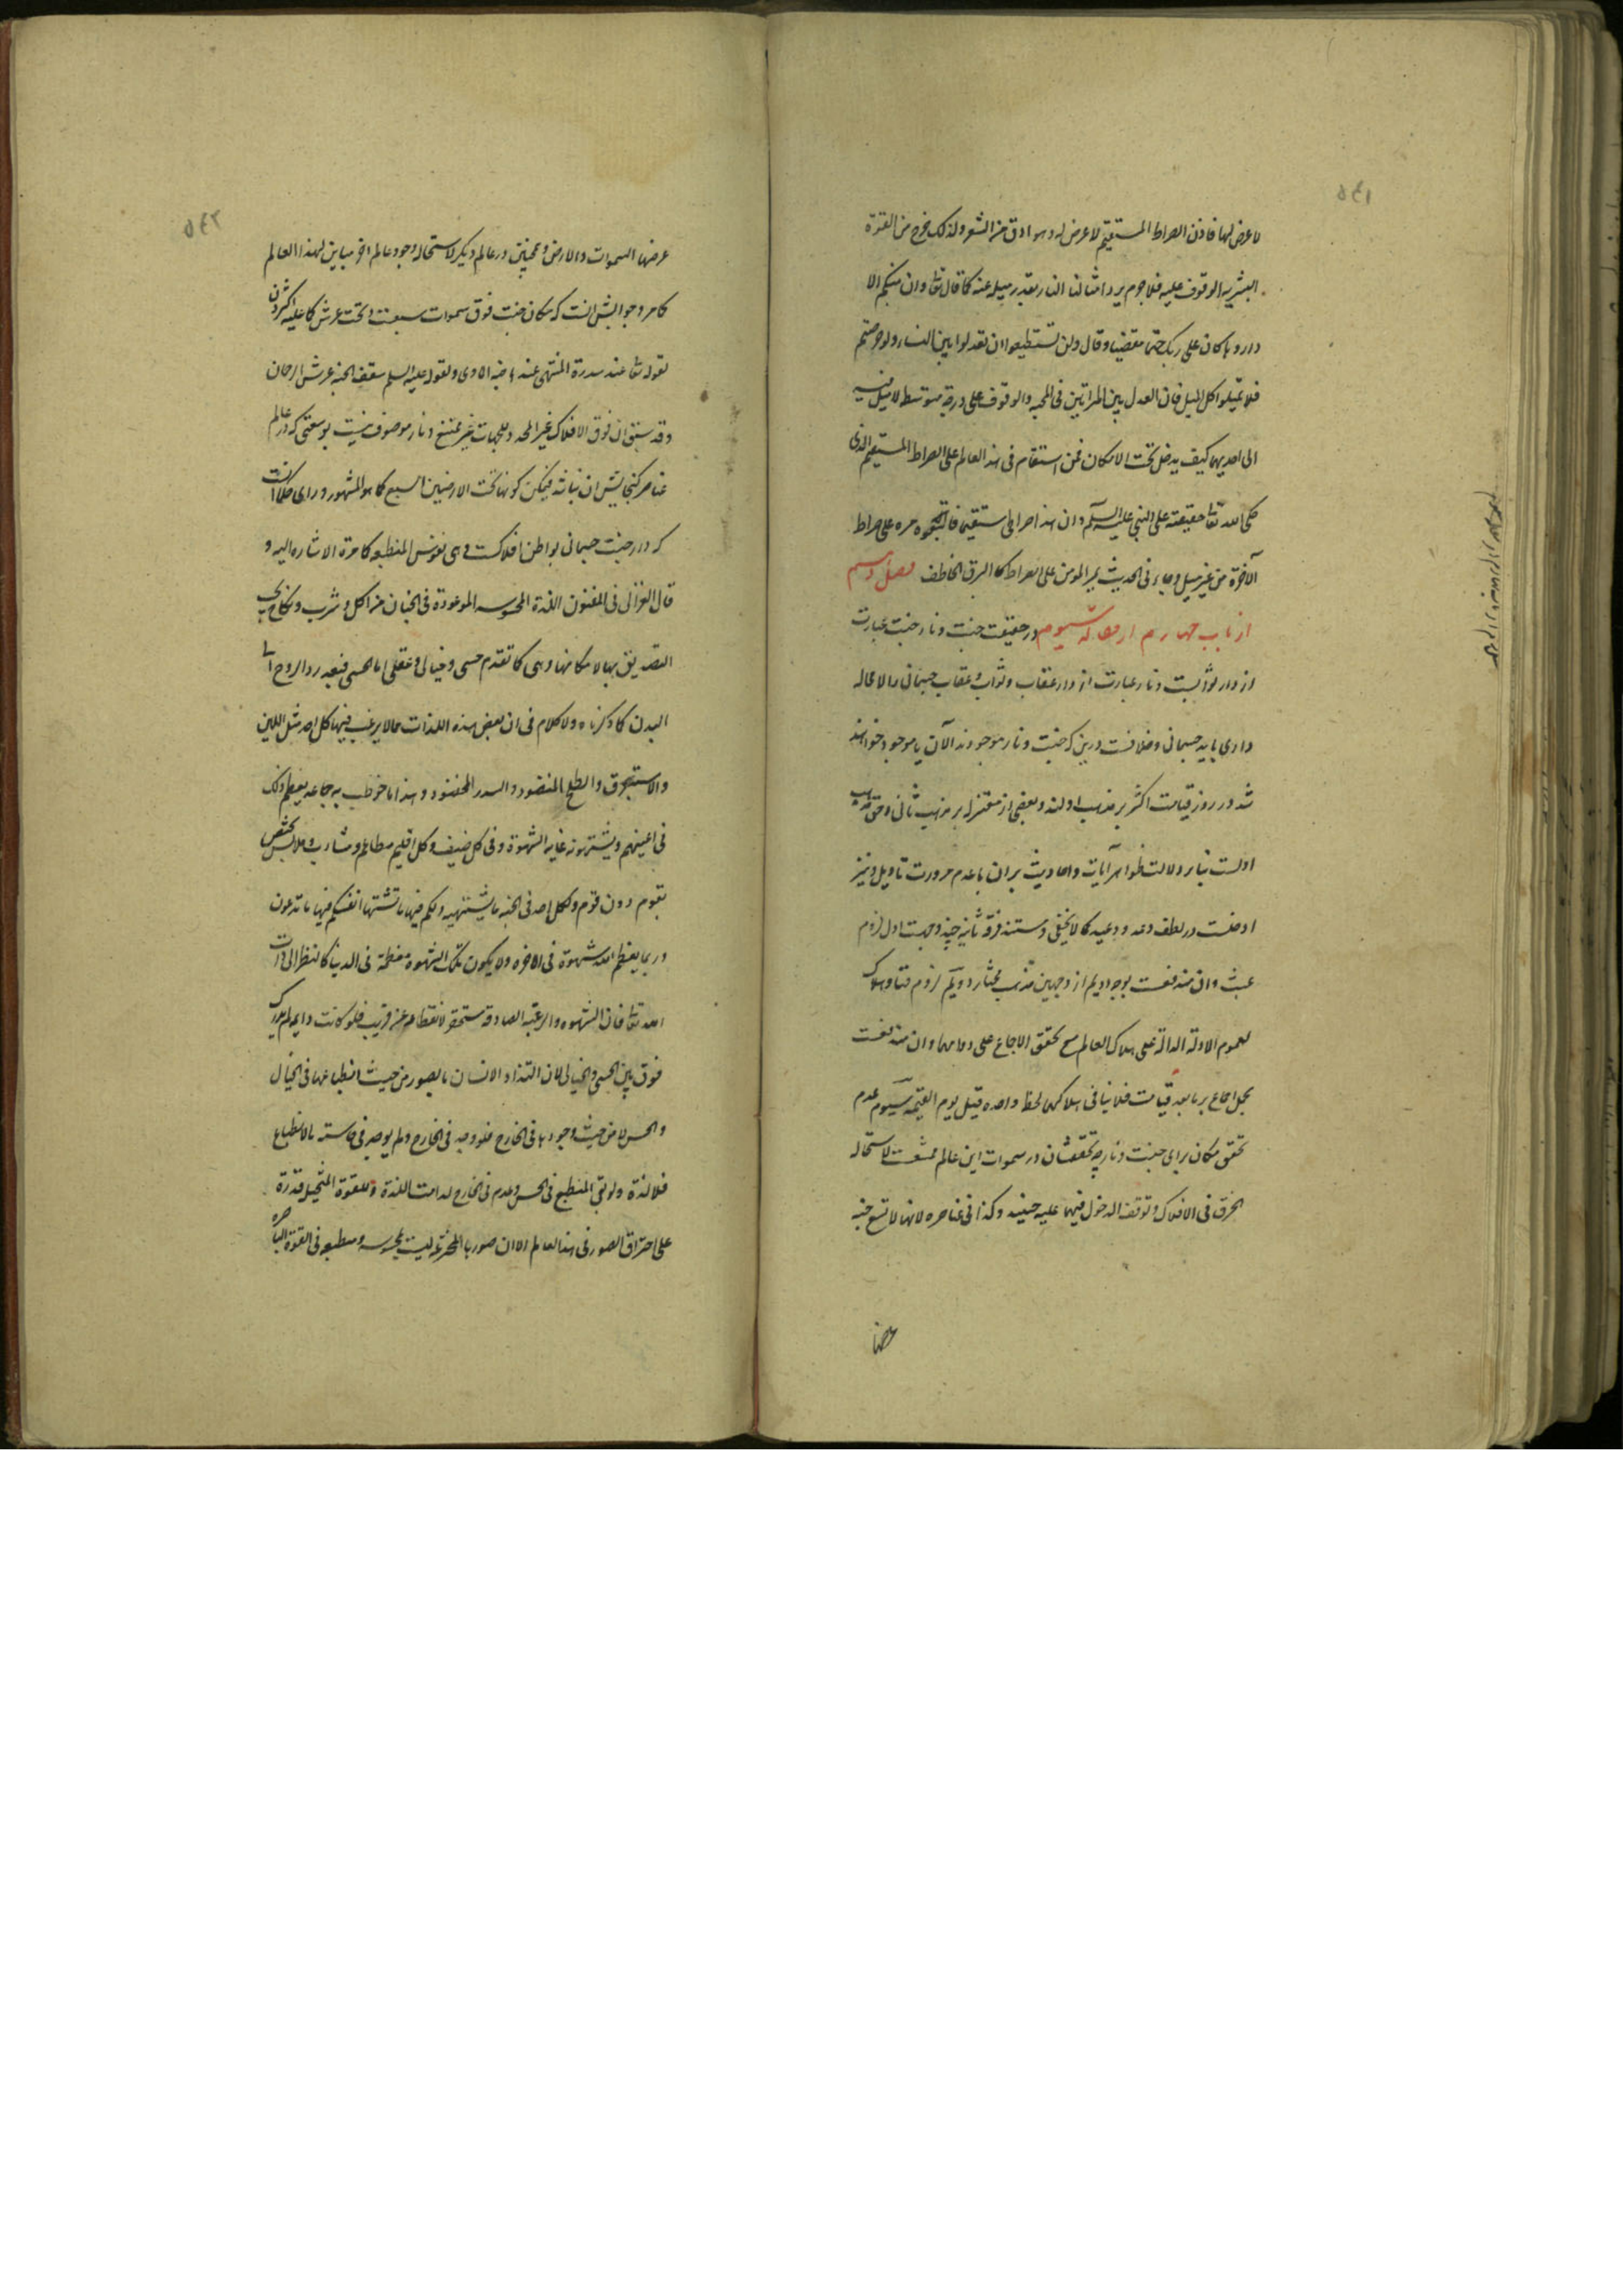 لا عرض لها فاذن الصراط المستقيم لا عرض له وهو ادق من الشعر ولذلك خرج من القوة
البشريه الوقوف عليه فلا جرم يرد امثالنا النار بقدر ميله عنه كما قال تعا وان منكم الا
واردها كان على ربك حتما مقضيا وقال ولن تستطيعوا ان تعدلوا بين النساء ولو حرصتم
فلا تميلوا كل الميل فان العدل بين المراتين في المحبه والوقوف على درجة متوسط لا ميل فيه
الى احديهما كيف يدخل تحت الامكان فمن استقام في هذا العالم على الصراط المستقيم الذى
حكى الله تعا حقيقته على النبي عليه السلم وان هذا صراطى مستقيما فاتبعوه مره على صراط
الآخرة من غير ميل وجاء في الحديث يمر المومن على الصراط كالبرق الخاطف فصل دهم
از باب چهارم از مقاله سيوم در حقيقت جنت و نار جنت عبارت
از دار ثوابست و نار عبارت از دار عقاب و ثواب و عقاب جسمانى را لا محاله
دارى بايد جسمانى و خلافست درين كه جنت و نار موجودند الآن يا موجود خواهند
شد در روز قيامت اكثر بر مذهب اولند و بعضى از معتزله بر مذهب ثانى و حق مذهب
اولست بنا بر دلالت ظواهر آيات و احاديث بران با عدم ضرورت تاويل و نيز
ادخلست در لطف وعد و وعيد كما لا يخفى و مستند فرقه ثانيه چند وجهست اول لزوم
عبث وان مندفعست بوجه اديم از وجهين مذهب مختار دويم لزوم فنا و هلاك
لعموم الادلة الدالة على هلاك العالم مع تحقق الاجماع على دوامهما وان مندفعست
بحمل اجماع بر ما بعد قيامت فلا ينافى هلاكهما لحظة واحده قبل يوم القيمه سيوم عدم
تحقق مكان براى جنت و نار چه تحققشان در سموات اين عالم ممتنعست لاستحاله
الخرق في الافلاك و توقف الدخول فيهما عليه حينئذ وكذا في عناصره لانها لا تسع جنه
عرضها
عرضها السموات والارض و همچنين در عالم ديكر لاستحاله وجود عالم اخر مباين لهذا العالم
كما مر و جوابش انست كه مكان جنت فوق سموات سبعست و تحت عرش كما عليه اكثرون
لقوله تعا عند سدرة المنتهى عندها جنه الماوى ولقوله عليه السلم سقف الجنه عرش الرحمان
وقد سبق ان فوق الافلاك غير المحدد للجهات غير ممتنع و نار موصوف نيست بوسعتى كه در عالم
عناصر كنجايش ان نباشد فيمكن كونها تحت الارضين السبع كما هو المشهور و راى حكما انست
كه دار جنت جسمانى بواطن افلاكست و هى نفوس المنطبعه كما مرة الاشاره اليه و
قال الغزالى في المضنون اللذة المحسوسه الموعودة في الجنان من اكل و شرب و نكاح يجب
التصديق بها لامكانها وهى كما تقدم حسى و خيالى و عقلى اما الحسى فبعد رد الروح الى
البدن كما ذكرناه ولا كلام في ان بعض هذه اللذات مما لا يرغب فيها كل احد مثل اللبن
والاستبرق والطلح المنضود والسدر المخضود وهذا ما خوطب به جماعه يعظم ذلك
في اعينهم ويشتهونه غايه الشهوة وفى كل صنف وكل اقليم مطاعم ومشارب وملابس يختص
بقوم دون قوم ولكل احد في الجنه ما يشتهيه ولكم فيها ما تشتها انفسكم فيها ما تدعون
وربما يعظم الله شهوة في الاخره ولا يكون تلك الشهوة معظمة في الدنيا كالنظر الى ذات
الله تعا فان الشهوه والرغبه الصادقه مستحق لانقطاعه عن قريب فلو كانت دايمه لم يدرك
فوق بين الحسى والخيالى لان التذاذ الانسان بالصور من حيث انطباعها في الخيال
والحس لا من حيث وجودها في الخارج فلو وجد في الخارج ولم يوجد في حاسته بالانطباع
فلا لذة ولو بقى المنطبع في الحس وعدم في الخارج لدامت اللذة وللقوة المتخيله قدرة
على اختراق الصور في هذا العالم الا ان صورها المخترعه ليست بمحسوسه ومنطبعه في القوة الباصره